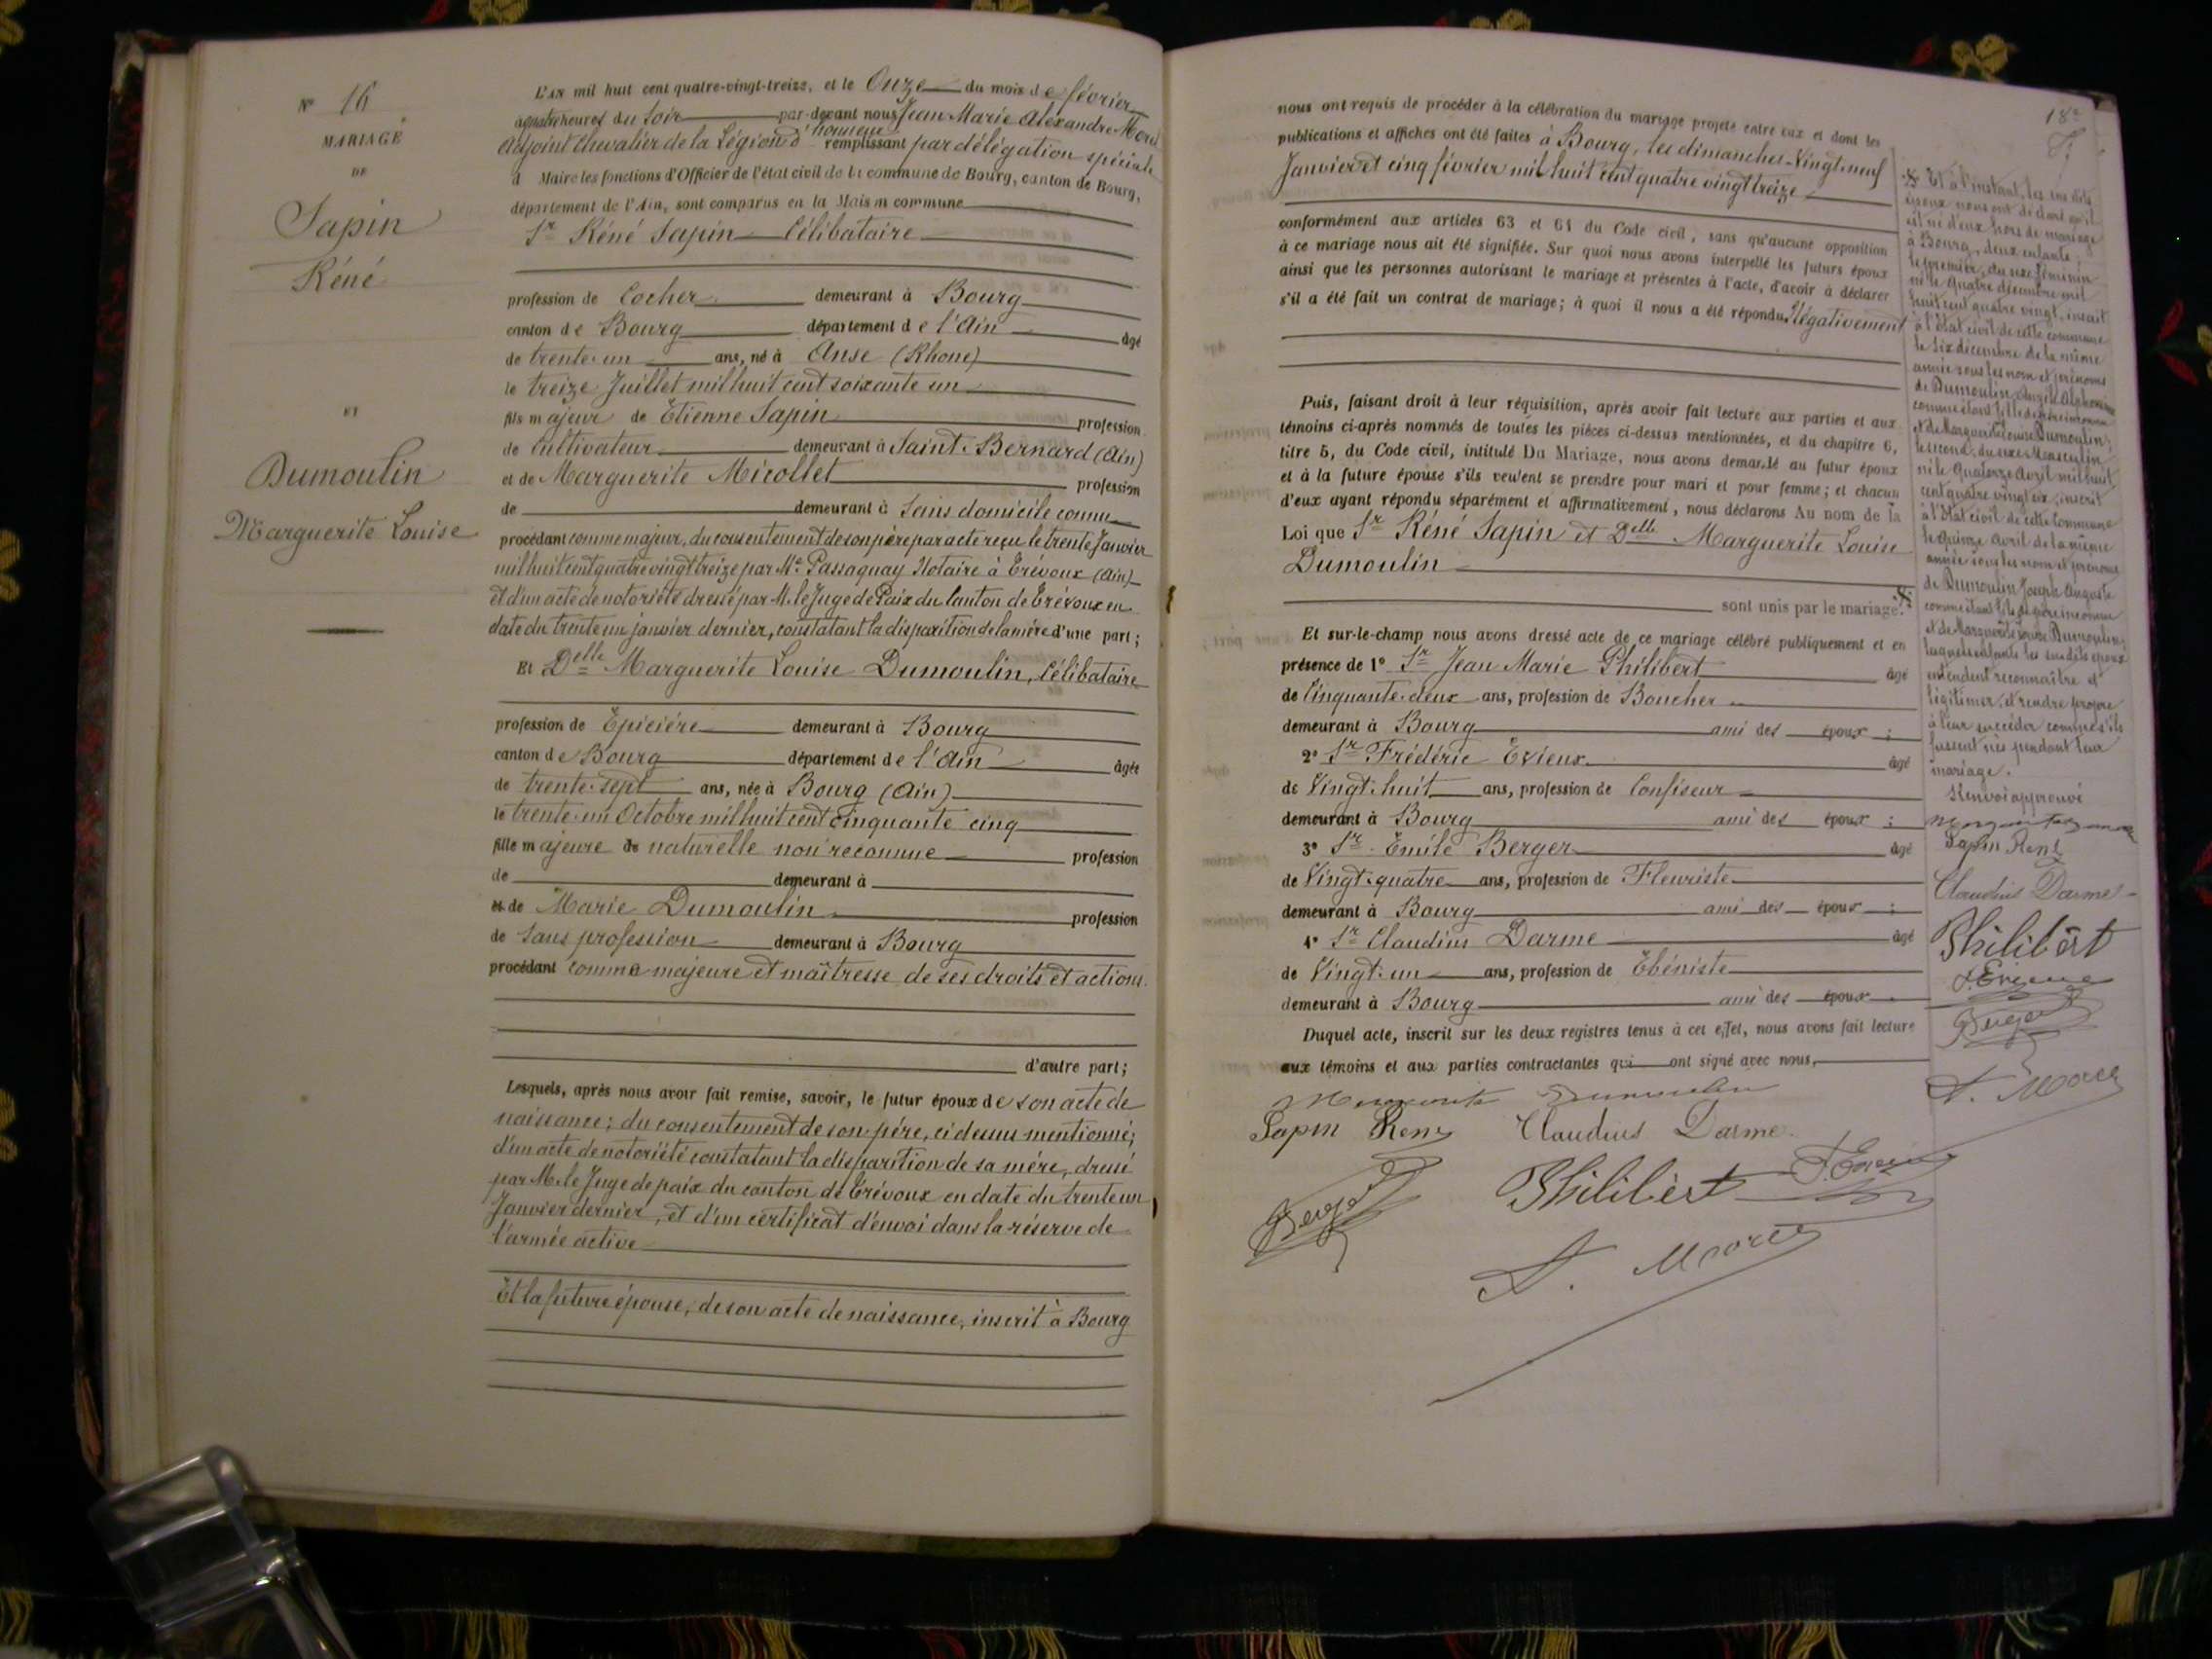 N° 16
MARIAGE
DE
Sapin
Réné
ET
Dumoulin
Marguerite Louise
L'AN mil huit cent quatre-vingt-treize, et le Onze du mois de février
à quatre heures du soir par-devant nous Jean Marie Alexandre
Adjoint Chevalier de la Légion d'honneur remplissant par délégation spéciale
d Maire les fonctions d'Officier de l'état civil de la commune de Bourg, canton de Bourg,
département de l'Ain, sont comparus en la Maison commune
Sr Réné Sapin Célibataire
profession de Cocher demeurant à Bourg
canton de Bourg département de l'Ain âgé
de trente-un ans, né à Anse (Rhone)
le treize Juillet mil huit cent soixante un
fils majeur de Etienne Sapin profession
de Cultivateur demeurant à Saint-Bernard (Ain)
et de Marguerite Micollet profession
de demeurant à Sans domicile connu
procédant comme majeur, du consentement de son père par acte reçu le trente Janvier
mil huit cent quatre vingt treize par Me Passaquay Notaire à Trévoux (Ain)
et d'un acte de notoriété dressé par M. le Juge de Paix du Canton de Trévoux en
date du trente un janvier dernier, constatant la disparition de la mère d'une part;
Et Delle Marguerite Louise Dumoulin, Célibataire
profession de Epicière demeurant à Bourg
canton de Bourg département de l'Ain âgée
de trente-sept ans, née à Bourg (Ain)
le trente-un Octobre mil huit cent cinquante cinq
fille majeure de naturelle non reconnue profession
de demeurant à
et de Marie Dumoulin profession
de Sans profession demeurant à Bourg
procédant comme majeure et maîtresse de ses droits et actions.
d'autre part;
Lesquels, après nous avoir fait remise, savoir, le futur époux de son acte de
naissance; du consentement de son père, ci dessus mentionné;
d'un acte de notoriété constatant la disparition de sa mère, dressé
par M. le Juge de paix du canton de Trévoux en date du trente un
Janvier dernier, et d'un certificat d'envoi dans la réserve de
l'armée active
Et la future épouse, de son acte de naissance, inscrit à Bourg
18e
nous ont requis de procéder à la célébration du mariage projeté entre eux et dont les
publications et affiches ont été faites à Bourg, les dimanches Vingt-neuf
Janvier et cinq février mil huit cent quatre vingt treize
conformément aux articles 63 et 64 du Code civil, sans qu'aucune opposition
à ce mariage nous ait été signifiée. Sur quoi nous avons interpellé les futurs époux
ainsi que les personnes autorisant le mariage et présentes à l'acte, d'avoir à déclarer
s'il a été fait un contrat de mariage; à quoi il nous a été répondu Négativement
Puis, faisant droit à leur réquisition, après avoir fait lecture aux parties et aux
témoins ci-après nommés de toutes les pièces ci-dessus mentionnées, et du chapitre 6,
titre 5, du Code civil, intitulé Du Mariage, nous avons demandé au futur époux
et à la future épouse s'ils veulent se prendre pour mari et pour femme; et chacun
d'eux ayant répondu séparément et affirmativement, nous déclarons Au nom de la
Loi que Sr Réné Sapin et Delle Marguerite Louise
Dumoulin
sont unis par le mariage.
Et sur-le-champ nous avons dressé acte de ce mariage célébré publiquement et en
présence de 1° Sr Jean Marie Philibert âgé
de Cinquante-deux ans, profession de Boucher
demeurant à Bourg ami des époux;
2° Sr Frédéric Evieux âgé
de Vingt-huit ans, profession de Confiseur
demeurant à Bourg ami des époux;
3° Sr Emile Berger âgé
de Vingt-quatre ans, profession de Fleuriste
demeurant à Bourg ami des époux;
4° Sr Claudius Darme âgé
de Vingt-un ans, profession de Ebéniste
demeurant à Bourg ami des époux
Duquel acte, inscrit sur les deux registres tenus à cet effet, nous avons fait lecture
aux témoins et aux parties contractantes qui ont signé avec nous,
Marguerite Dumoulin
Sapin René Claudius Darme
Berger Philibert F. Evieux
Et à l'instant, les susdits
époux nous ont déclaré qu'il
est né d'eux hors de mariage
à Bourg, deux enfants;
le premier, du sexe féminin
né le Quatre décembre mil
huit cent quatre vingt, inscrit
à l'état civil de cette commune
le six décembre de la même
année sous les nom et prénoms
de Dumoulin Angèle Alphonsine
comme étant fille de père inconnu
et de Marguerite Louise Dumoulin;
le second, du sexe Masculin
né le Quatorze Avril mil huit
cent quatre vingt six, inscrit
à l'état civil de cette Commune
le Quinze Avril de la même
année sous les nom et prénoms
de Dumoulin Joseph Auguste
comme étant fils de père inconnu
et de Marguerite Louise Dumoulin;
lesquels enfants les susdits époux
entendent reconnaître et
légitimer, et rendre propre
à leur succéder comme s'ils
fussent nés pendant leur
mariage.
Renvoi approuvé
Sapin René
Claudius Darme
Philibert
F. Evieux
Berger